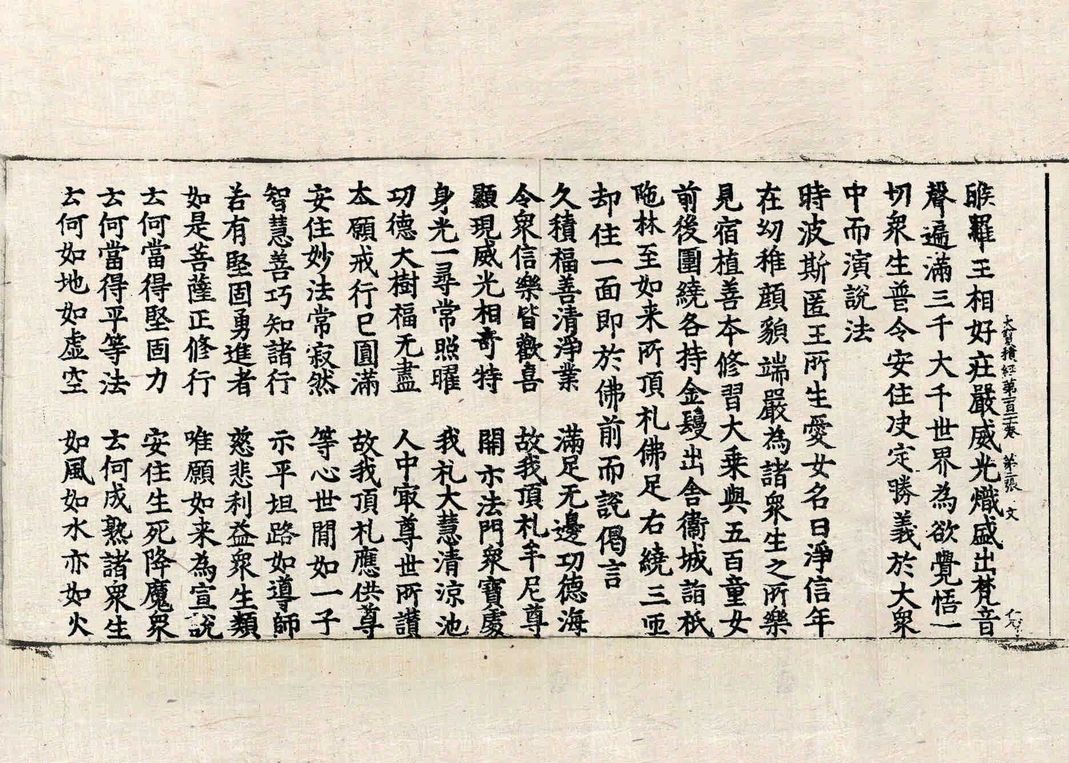 大寶積經第一百一十一卷 第二張 文
睺羅王相好莊嚴威光熾盛出梵音
聲遍滿三千大千世界為欲覺悟一
切衆生普令安住決定勝義於大衆
中而演說法
時波斯匿王所生愛女名曰淨信年
在幼稚顏貌端嚴為諸衆生之所樂
見宿植善本修習大乘與五百童女
前後圍繞各持金鬘出舍衞城詣祇
陁林至如来所頂礼佛足右繞三帀
却住一面即於佛前而說偈言
久積福善清淨業 滿足无邊功德海
令衆信樂皆歡喜 故我頂礼牟尼尊
顯現威光相奇特 開示法門衆寶處
身光一尋常照曜 我礼大慧清涼池
功德大樹福无盡 人中㝡尊世所讃
本願戒行已圓滿 故我頂礼應供尊
安住妙法常寂然 等心世閒如一子
智慧善巧知諸行 示平坦路如導師
若有堅固勇進者 慈悲利益衆生類
如是菩薩正修行 唯願如来為宣說
云何當得堅固力 安住生死降魔衆
云何當得平等法 云何成熟諸衆生
云何如地如虛空 如風如水亦如火